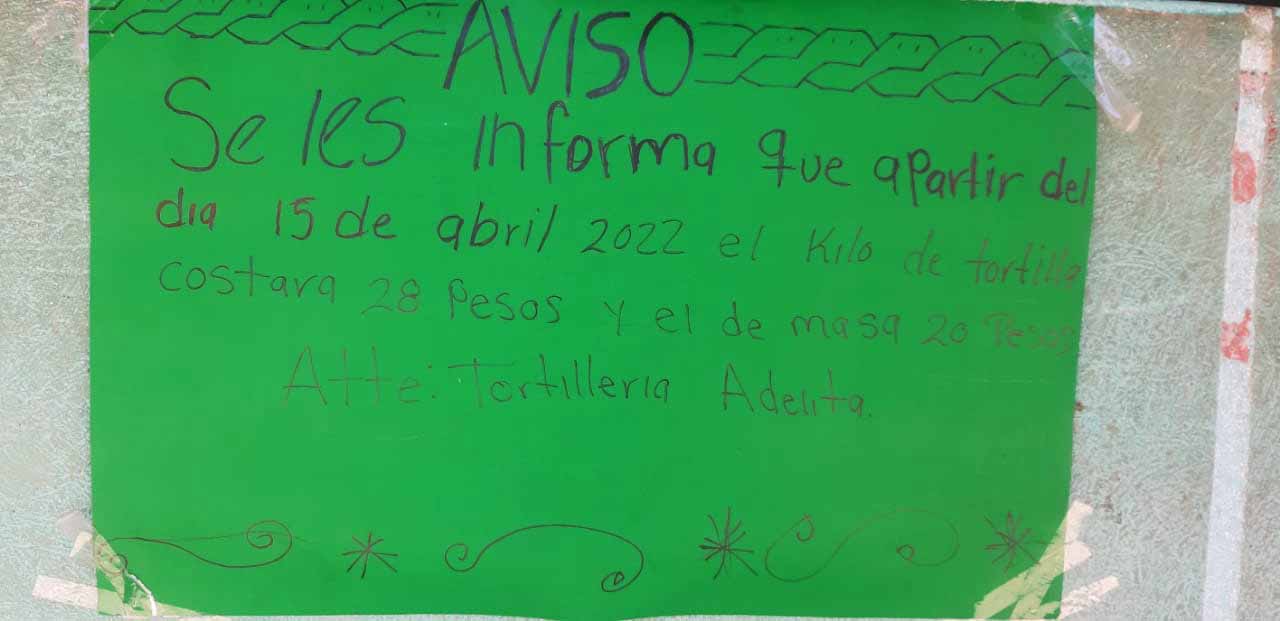 AVISO
Se les informa que apartir del
dia 15 de abril 2022 el Kilo de tortilla
costara 28 Pesos y el de masa 20 Pesos
Atte: Tortilleria Adelita.